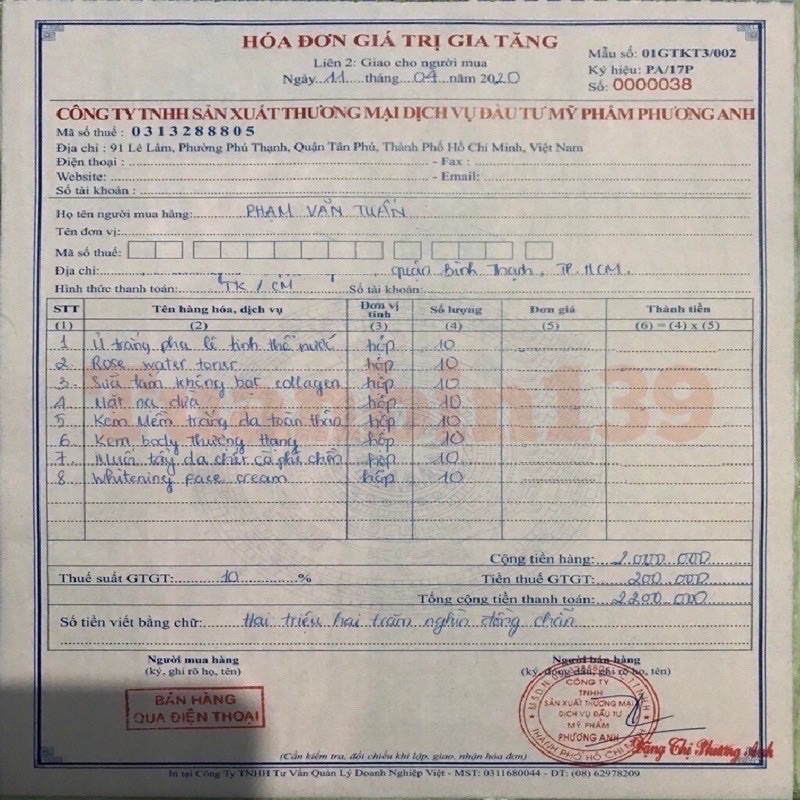 HÓA ĐƠN GIÁ TRỊ GIA TĂNG
Liên 2: Giao cho người mua
Ngày 11 tháng 04 năm 2020
Mẫu số: 01GTKT3/002
Ký hiệu: PA/17P
Số: 0000038
CÔNG TY TNHH SẢN XUẤT THƯƠNG MẠI DỊCH VỤ ĐẦU TƯ MỸ PHẨM PHƯƠNG ANH
Mã số thuế : 0313288805
Địa chỉ : 91 Lê Lâm, Phường Phú Thạnh, Quận Tân Phú, Thành Phố Hồ Chí Minh, Việt Nam
Điện thoại : - Fax :
Website: - Email:
Số tài khoản :
Họ tên người mua hàng: PHẠM VĂN TUẤN
Tên đơn vị:
Mã số thuế:
Địa chỉ: quận Bình Thạnh, TP. HCM.
Hình thức thanh toán: TK / CM Số tài khoản:
STT Tên hàng hóa, dịch vụ Đơn vị tính Số lượng Đơn giá Thành tiền
(1) (2) (3) (4) (5) (6) = (4) x (5)
1 Ủ trắng pha lê tinh thể nước hộp 10
2 Rose water toner hộp 10
3 Sữa tắm không bọt collagen hộp 10
4 Mặt nạ dừa hộp 10
5 Kem Mềm trắng da toàn thân hộp 10
6 Kem body thượng hạng hộp 10
7 Muối tẩy da chết cà phê hộp 10
8 Whitening face cream hộp 10
Cộng tiền hàng: 2.000.000
Thuế suất GTGT: 10 % Tiền thuế GTGT: 200.000
Tổng cộng tiền thanh toán: 2.200.000
Số tiền viết bằng chữ: Hai triệu hai trăm nghìn đồng chẵn
Người mua hàng Người bán hàng
(ký, ghi rõ họ, tên) (ký, đóng dấu, ghi rõ họ, tên)
BÁN HÀNG
QUA ĐIỆN THOẠI
CÔNG TY
TNHH
SẢN XUẤT THƯƠNG MẠI
DỊCH VỤ ĐẦU TƯ
MỸ PHẨM
PHƯƠNG ANH
THÀNH PHỐ HỒ CHÍ MINH
Đặng Thị Phương Anh
(Cần kiểm tra, đối chiếu khi lập, giao, nhận hóa đơn)
In tại Công Ty TNHH Tư Vấn Quản Lý Doanh Nghiệp Việt - MST: 0311680044 - ĐT: (08) 62978209